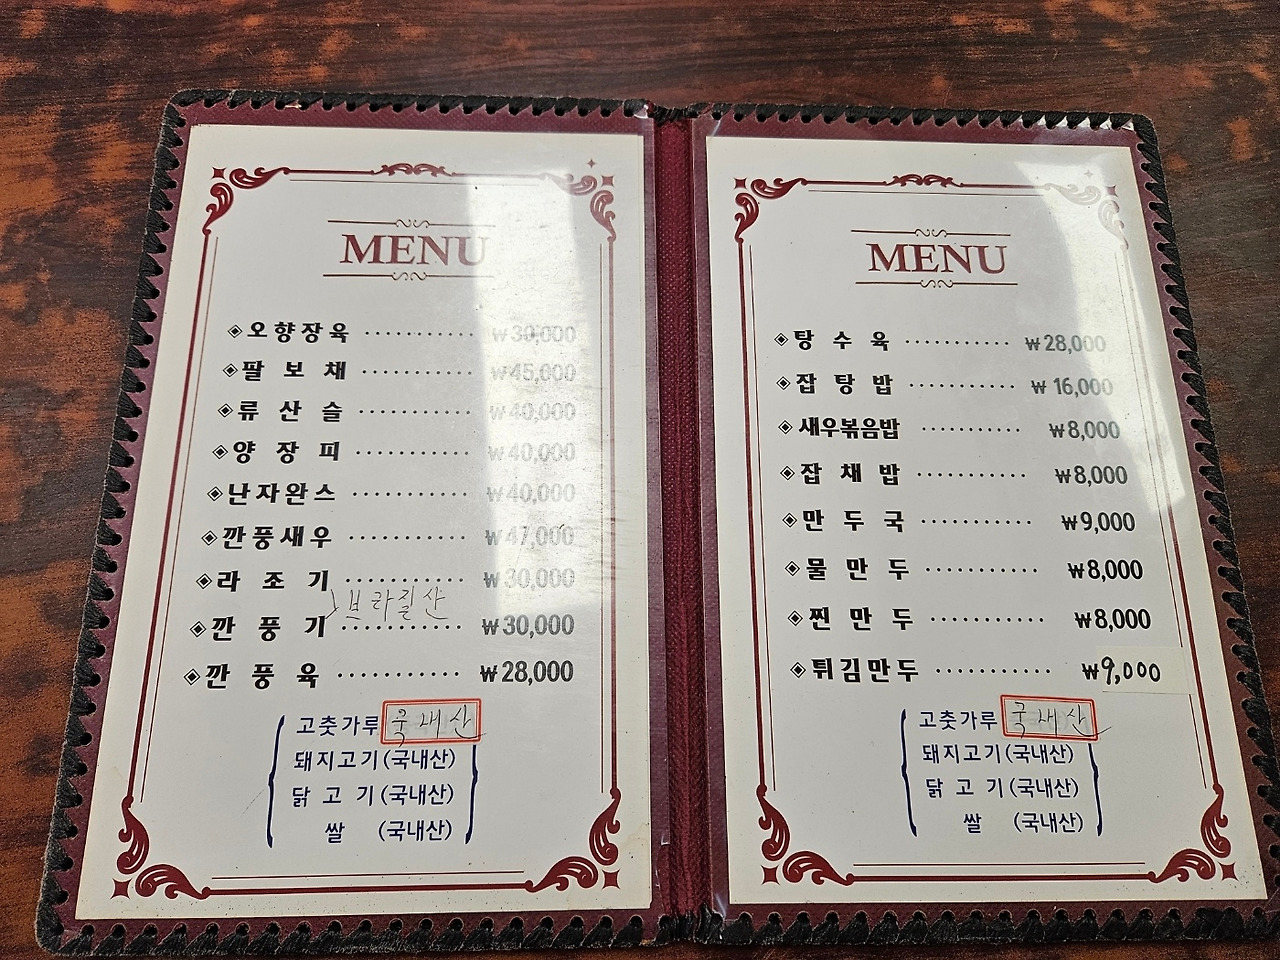 MENU
◈오향장육 ············ ₩30,000
◈팔 보 채 ············ ₩45,000
◈류 산 슬 ············ ₩40,000
◈양 장 피 ············ ₩40,000
◈난자완스 ············ ₩40,000
◈깐풍새우 ············ ₩47,000
◈라 조 기 ············ ₩30,000
브라질산
◈깐 풍 기 ············ ₩30,000
◈깐 풍 육 ············ ₩28,000
고춧가루 국내산
돼지고기(국내산)
닭 고 기(국내산)
쌀 (국내산)
MENU
◈탕 수 육 ··········· ₩28,000
◈잡 탕 밥 ··········· ₩16,000
◈새우볶음밥 ·········· ₩8,000
◈잡 채 밥 ··········· ₩8,000
◈만 두 국 ··········· ₩9,000
◈물 만 두 ··········· ₩8,000
◈찐 만 두 ··········· ₩8,000
◈튀김만두 ··········· ₩9,000
고춧가루 국내산
돼지고기(국내산)
닭 고 기(국내산)
쌀 (국내산)